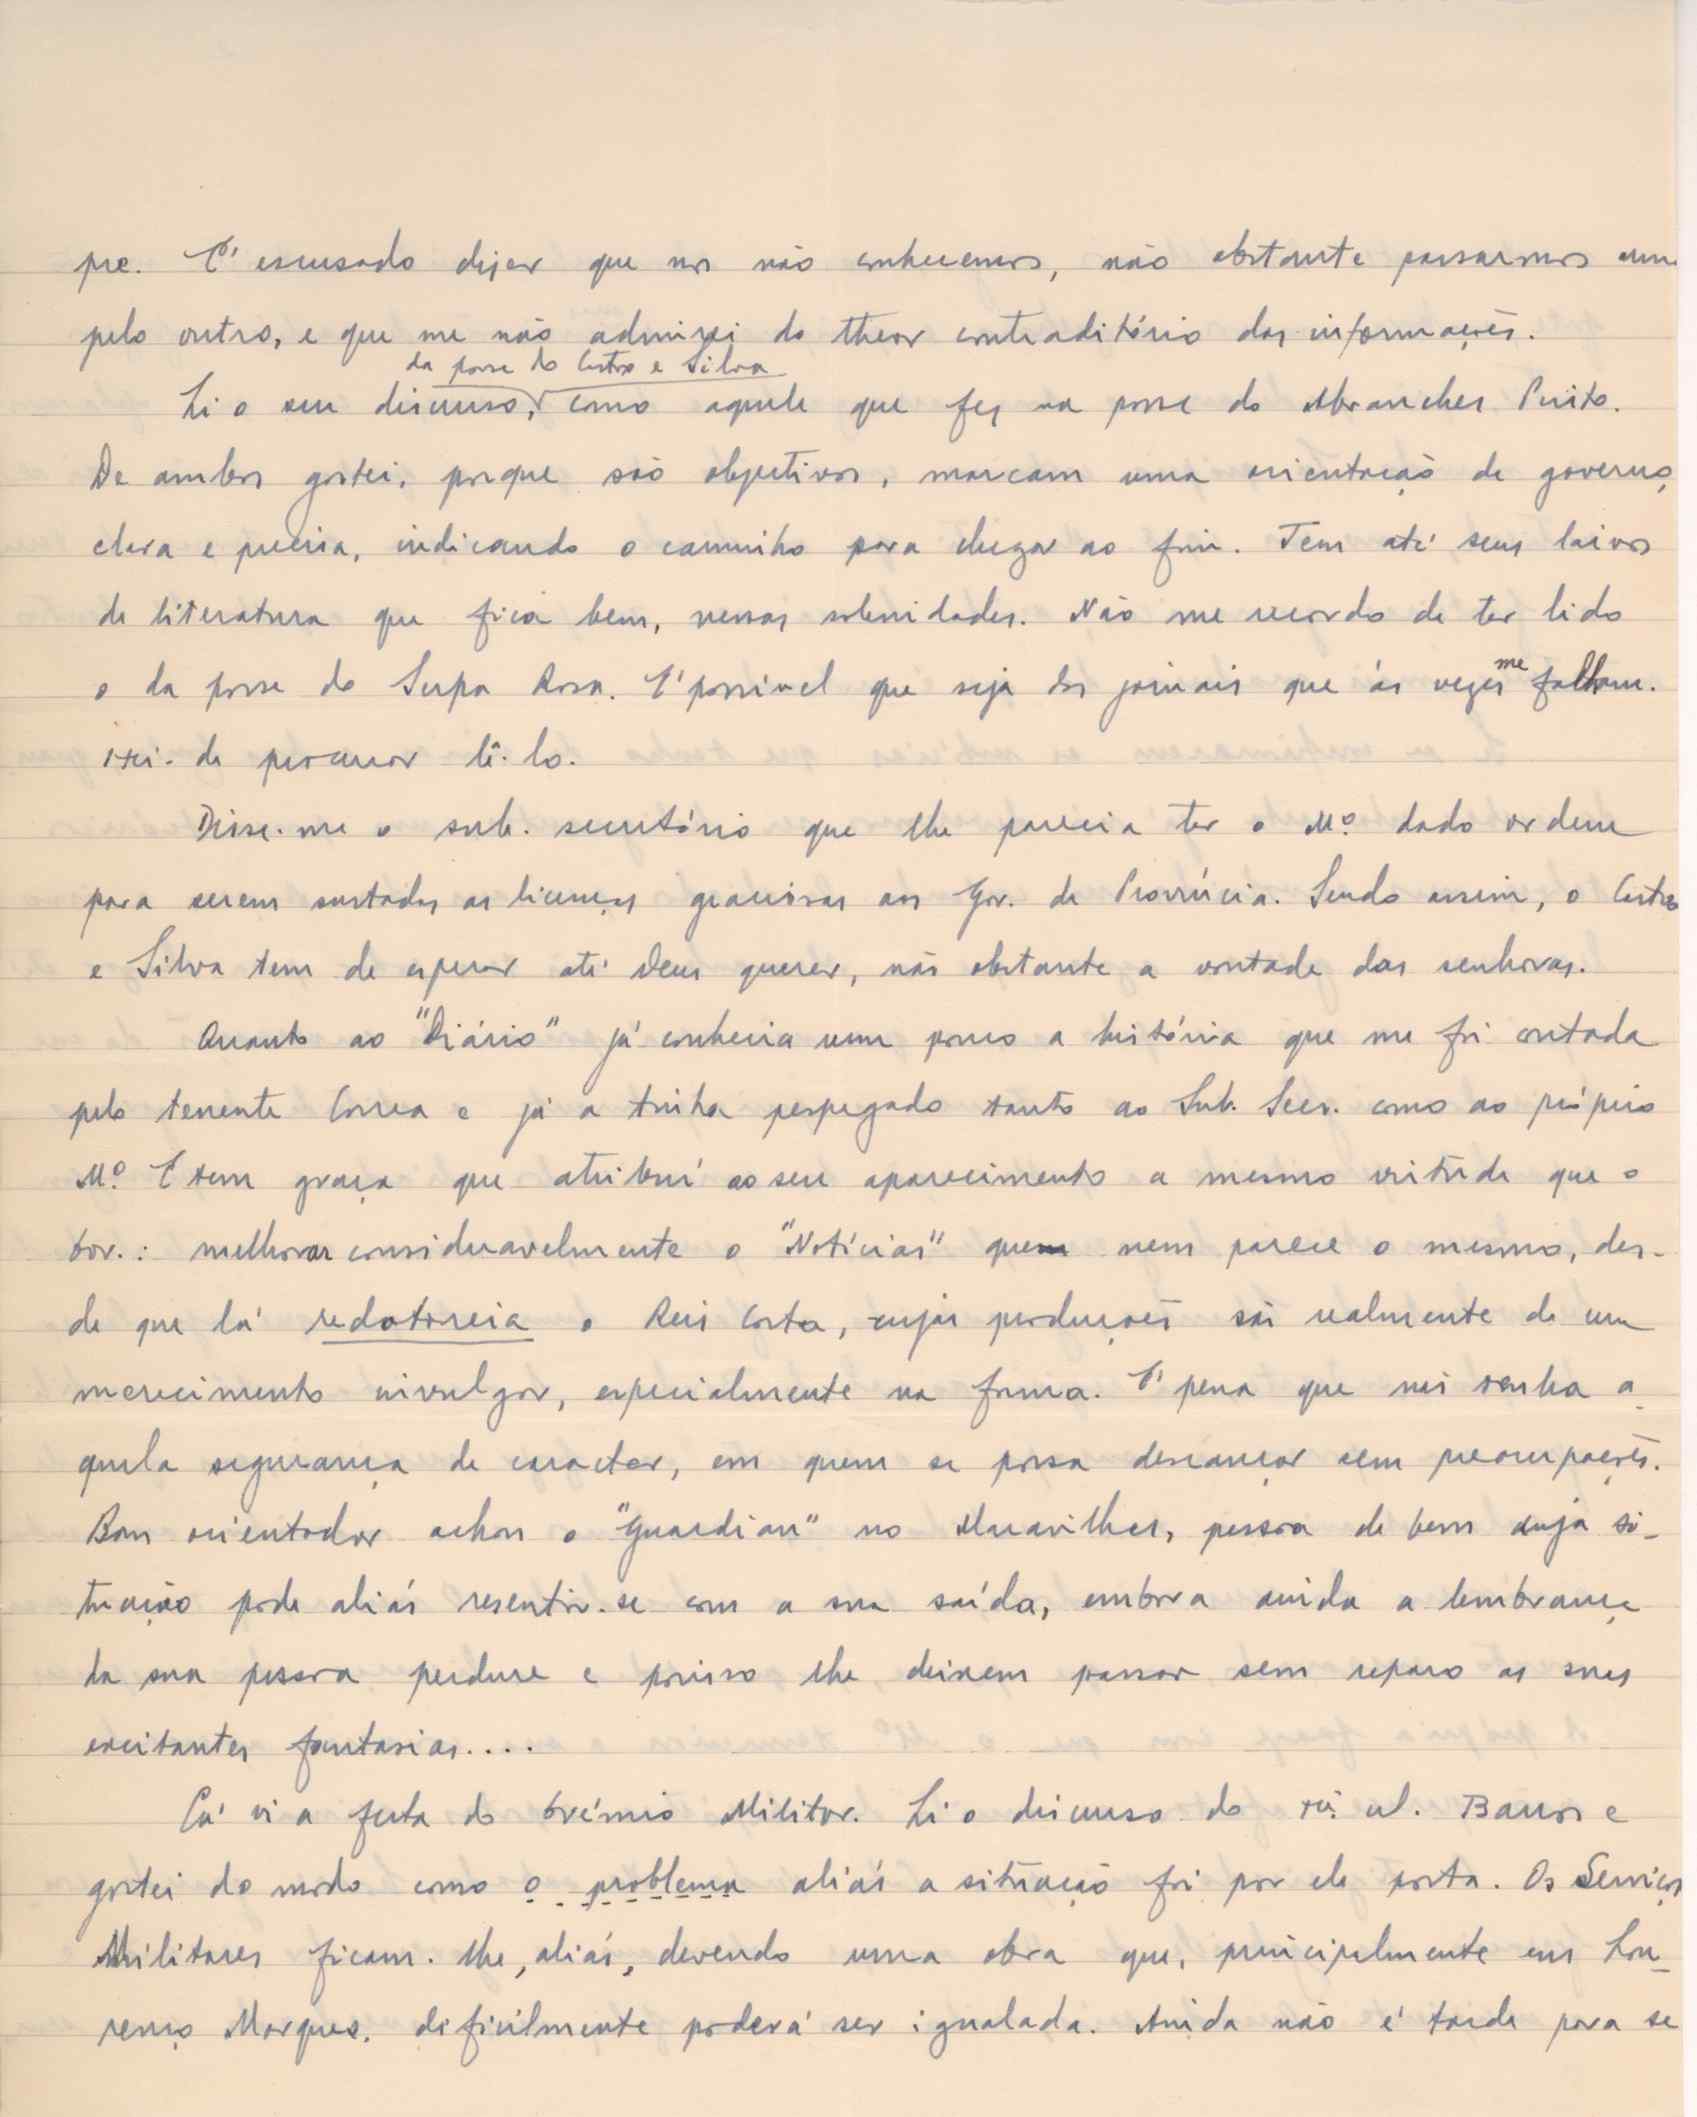 pre. E' escusado dizer que nos não conhecemos, não obstante passarmos um
pelo outro, e que me não admirei do theor contraditório das informações.
da posse do Castro e Silva
Li o seu discurso, como aquele que fez na posse do Abranches Pinto.
De ambos gostei, porque são objetivos, marcam uma orientação de governo,
clara e precisa, indicando o caminho para chegar ao fim. Tem até seus laivos
de literatura que fica bem, nessas solenidades. Não me recordo de ter lido
o da posse do Serpa Rosa. E' possivel que seja dos jornais que ás vezes me falham.
Hei-de procurar lê-lo.
Disse-me o sub-secretário que lhe parecia ter o Mº dado ordem
para serem sustadas as licenças graciosas aos Gov. de Província. Sendo assim, o Castro
e Silva tem de esperar até Deus querer, não obstante a vontade das senhoras.
Quanto ao "Diário" já conhecia um pouco a história que me foi contada
pelo tenente Correa e já a tinha pespegado tanto ao Sub. Secr. como ao próprio
Mº. E tem graça que atribuí ao seu aparecimento a mesma virtude que o
Gov.: melhorar consideravelmente o "Notícias" que nem parece o mesmo, des-
de que lá redatoreia o Reis Costa, cujas produções são realmente de um
merecimento invulgar, especialmente na forma. E' pena que não tenha a-
quela segurança de caracter, em quem se possa descançar sem preocupações.
Bom orientador achou o "Guardian" no Maravilhas, pessoa de bem cuja si-
tuação pode aliás resentir-se com a sua saída, embora ainda a lembrança
da sua pessoa perdure e porisso lhe deixem passar sem reparo as suas
excitantes fantasias....
Cá vi a festa do Grémio Militar. Li o discurso do cel. Barros e
gostei do modo como o problema aliás a situação foi por ele posta. Os Serviços
Militares ficam-lhe, aliás, devendo uma obra que, principalmente em Lou-
renço Marques, dificilmente poderá ser igualada. Ainda não é tarde para se